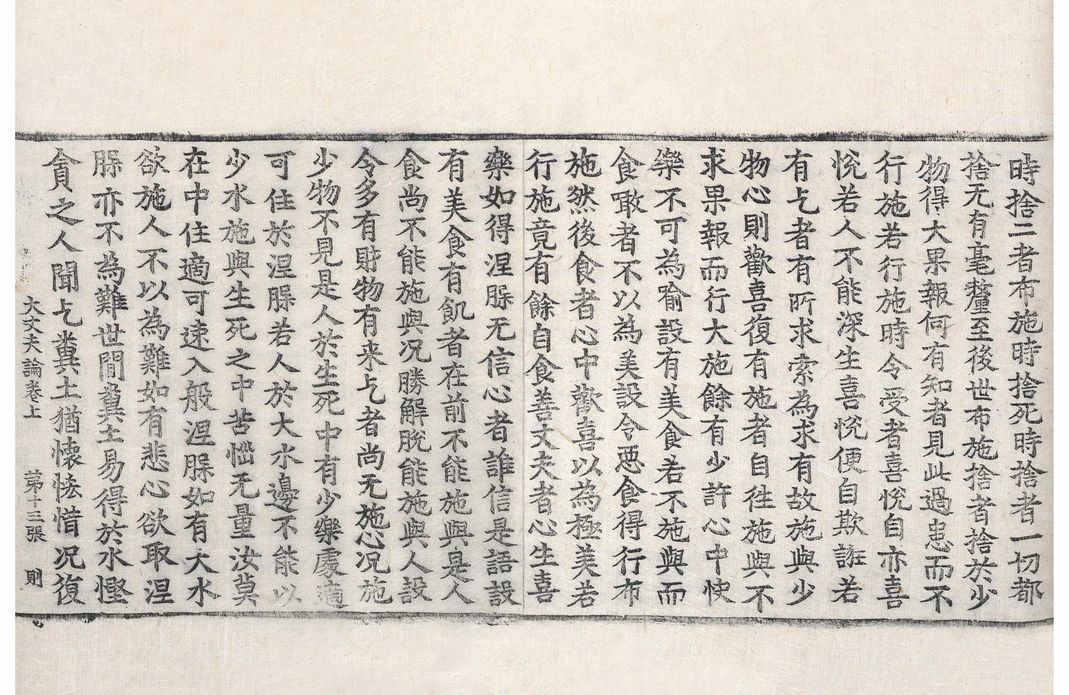 時捨二者布施時捨死時捨者一切都
捨无有毫釐至後世布施捨者捨於少
物得大果報何有知者見此過患而不
行施若行施時令受者喜悅自亦喜
悅若人不能深生喜悅便自欺誑若
有乞者有所求索為求有故施與少
物心則歡喜復有施者自徃施與不
求果報而行大施餘有少許心中快
樂不可為喻設有美食若不施與而
食噉者不以為美設令惡食得行布
施然後食者心中歡喜以為極美若
行施竟有餘自食善丈夫者心生喜
樂如得涅槃无信心者誰信是語設
有美食有飢者在前不能施與是人
食尚不能施與况勝解脫能施與人設
令多有財物有来乞者尚无施心况施
少物不見是人於生死中有少樂處適
可住於涅槃若人於大水邊不能以
少水施與生死之中苦惱无量汝莫
在中住適可速入般涅槃如有大水
欲施人不以為難如有悲心欲取涅
槃亦不為難世間糞土易得於水慳
貪之人聞乞糞土猶懷悋惜况復
大丈夫論卷上　第十三張　則